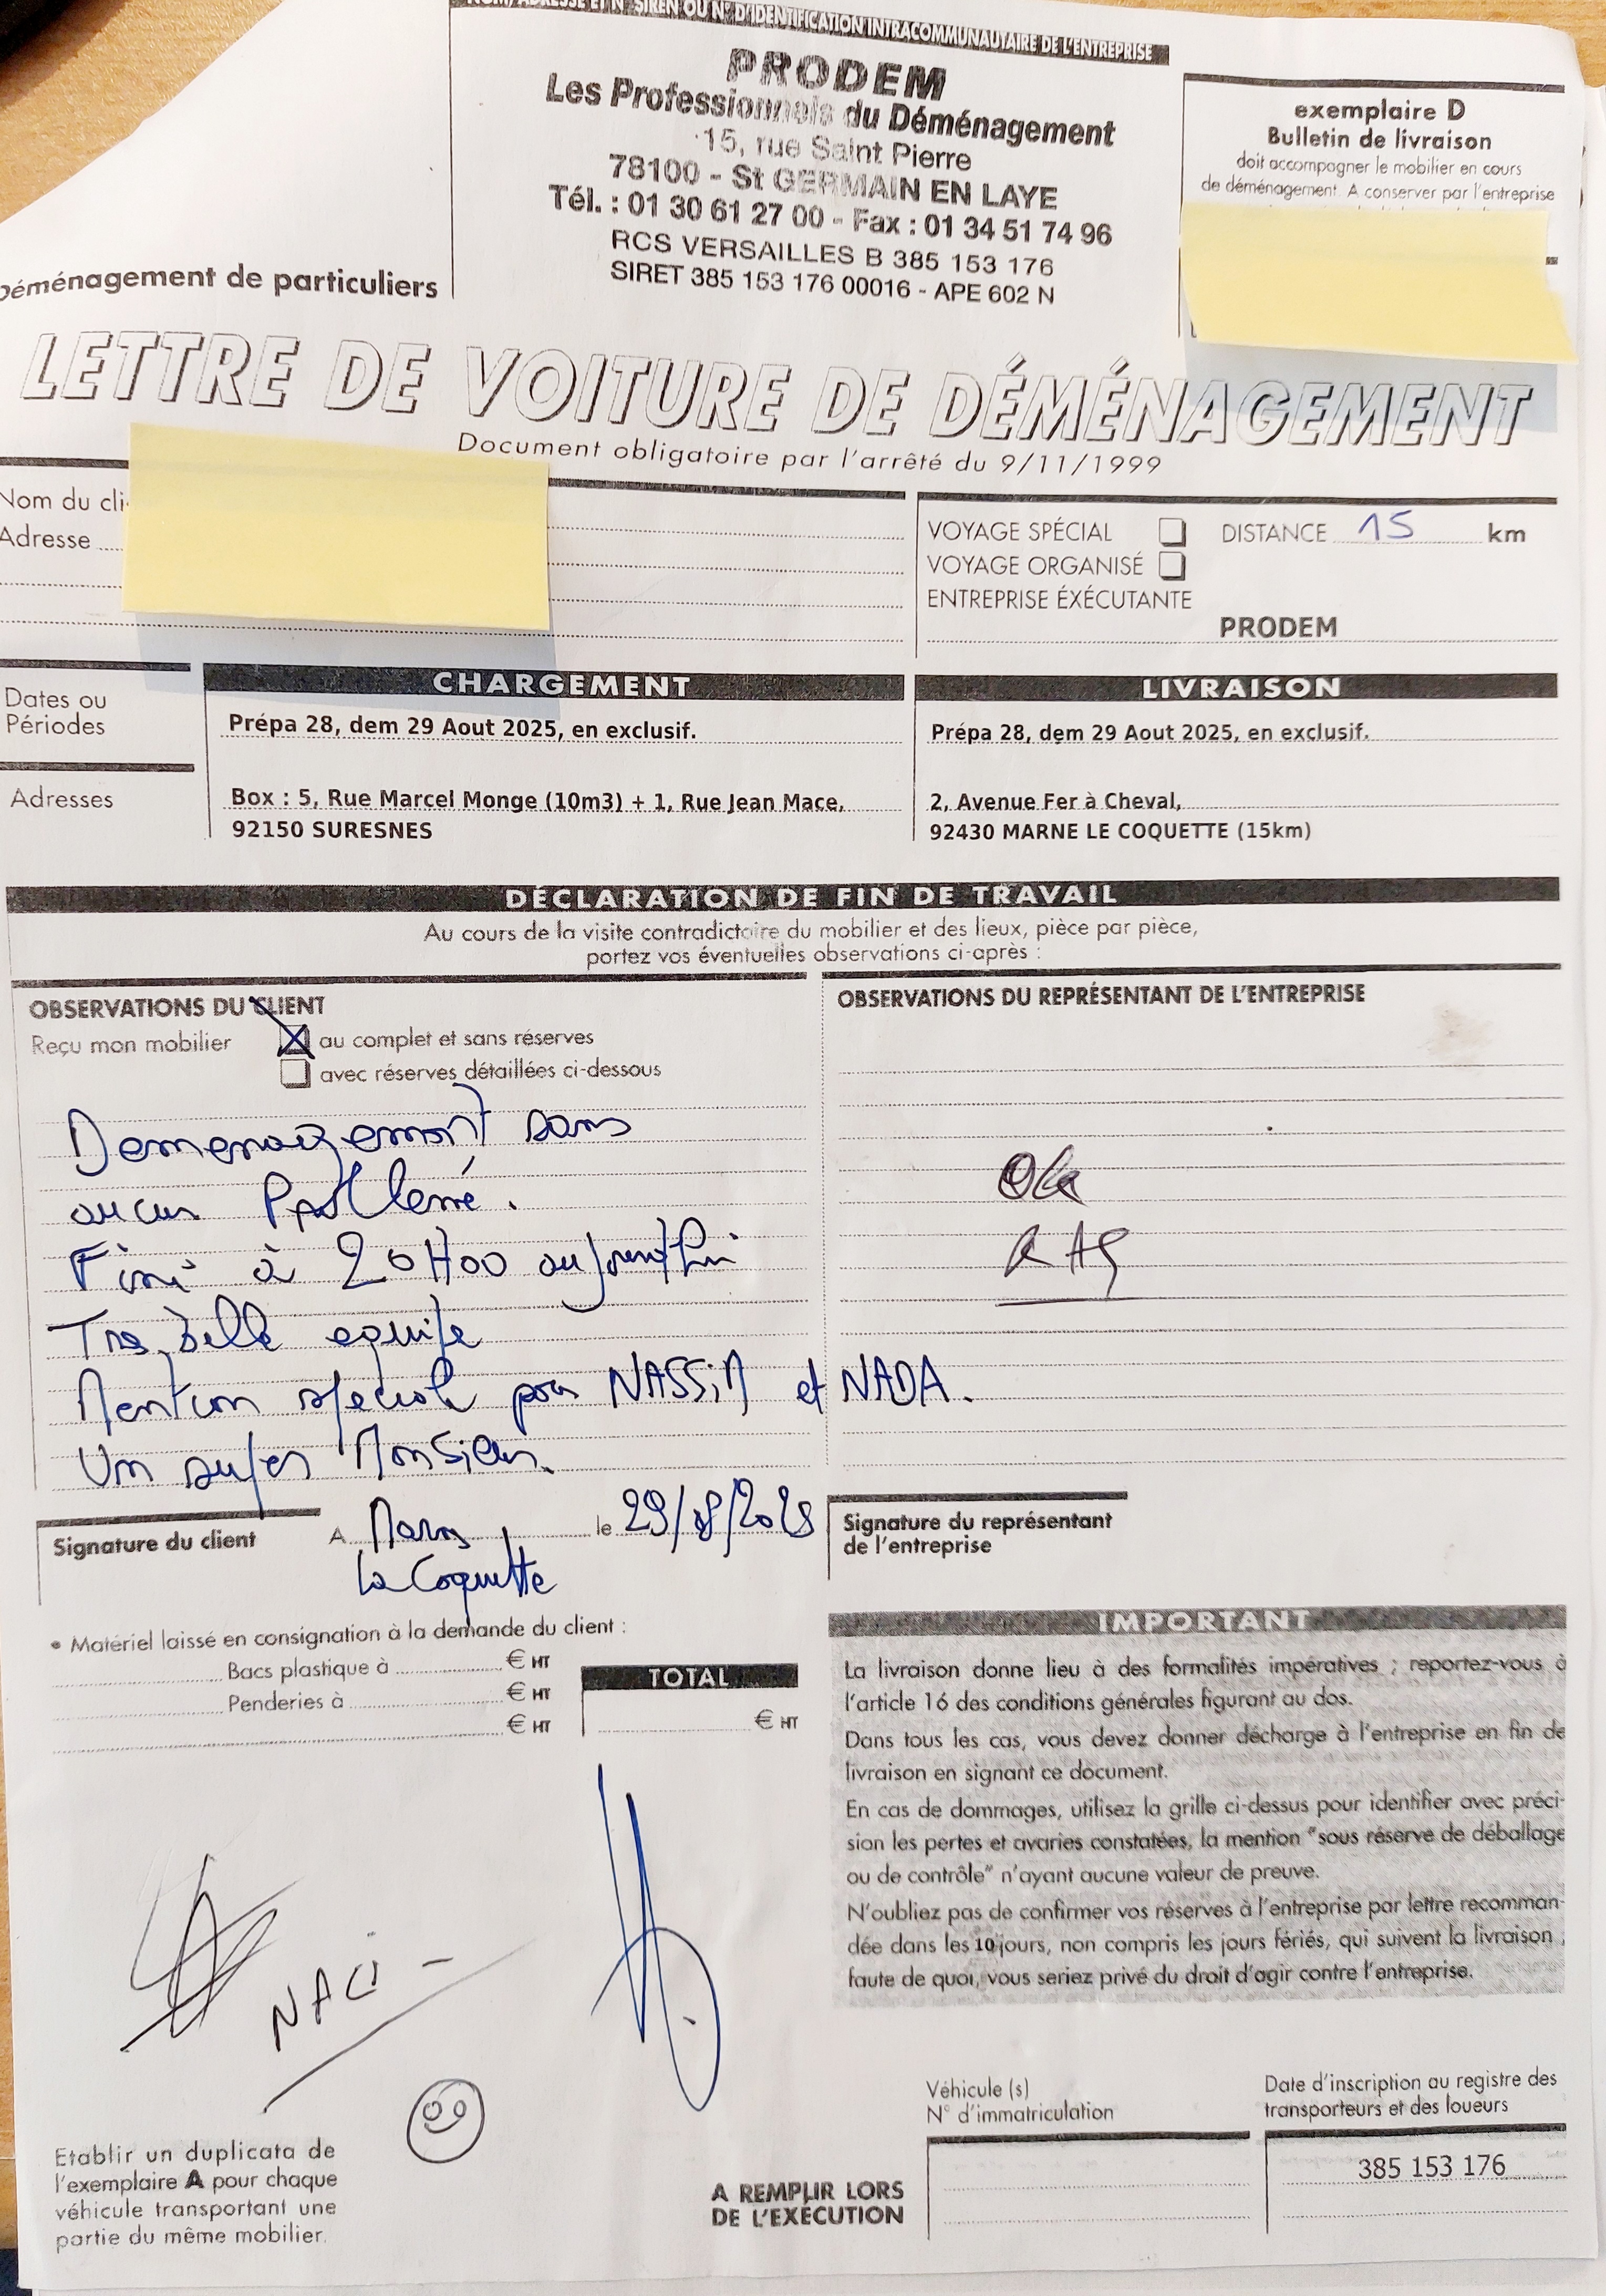 NOM, ADRESSE ET N° SIREN OU N° D'IDENTIFICATION INTRACOMMUNAUTAIRE DE L'ENTREPRISE
PRODEM
Les Professionnels du Déménagement
15, rue Saint Pierre
78100 - St GERMAIN EN LAYE
Tél. : 01 30 61 27 00 - Fax : 01 34 51 74 96
RCS VERSAILLES B 385 153 176
SIRET 385 153 176 00016 - APE 602 N
exemplaire D
Bulletin de livraison
doit accompagner le mobilier en cours
de déménagement. A conserver par l'entreprise
Déménagement de particuliers
LETTRE DE VOITURE DE DÉMÉNAGEMENT
Document obligatoire par l'arrêté du 9/11/1999
Nom du cli
Adresse
VOYAGE SPÉCIAL DISTANCE 15 km
VOYAGE ORGANISÉ
ENTREPRISE ÉXÉCUTANTE
PRODEM
Dates ou
Périodes
CHARGEMENT
Prépa 28, dem 29 Aout 2025, en exclusif.
LIVRAISON
Prépa 28, dem 29 Aout 2025, en exclusif.
Adresses
Box : 5, Rue Marcel Monge (10m3) + 1, Rue Jean Mace,
92150 SURESNES
2, Avenue Fer à Cheval,
92430 MARNE LE COQUETTE (15km)
DÉCLARATION DE FIN DE TRAVAIL
Au cours de la visite contradictoire du mobilier et des lieux, pièce par pièce,
portez vos éventuelles observations ci-après :
OBSERVATIONS DU CLIENT
Reçu mon mobilier au complet et sans réserves
avec réserves détaillées ci-dessous
Demenagement sans
aucun Problemé.
Fini à 20H00 aujourd'hui
Tres belle equipe
Mention speciale pour NASSiM et NADA.
Un super Monsieur.
OBSERVATIONS DU REPRÉSENTANT DE L'ENTREPRISE
Ok
RAS
Signature du client
A Marne
La Coquette
le 29/08/2025
Signature du représentant
de l'entreprise
• Matériel laissé en consignation à la demande du client :
Bacs plastique à € HT
Penderies à € HT
€ HT
TOTAL
€ HT
IMPORTANT
La livraison donne lieu à des formalités impératives ; reportez-vous à
l'article 16 des conditions générales figurant au dos.
Dans tous les cas, vous devez donner décharge à l'entreprise en fin de
livraison en signant ce document.
En cas de dommages, utilisez la grille ci-dessus pour identifier avec préci-
sion les pertes et avaries constatées, la mention "sous réserve de déballage
ou de contrôle" n'ayant aucune valeur de preuve.
N'oubliez pas de confirmer vos réserves à l'entreprise par lettre recomman-
dée dans les 10 jours, non compris les jours fériés, qui suivent la livraison ;
faute de quoi, vous seriez privé du droit d'agir contre l'entreprise.
NACi -
Etablir un duplicata de
l'exemplaire A pour chaque
véhicule transportant une
partie du même mobilier.
A REMPLIR LORS
DE L'EXÉCUTION
Véhicule (s)
N° d'immatriculation
Date d'inscription au registre des
transporteurs et des loueurs
385 153 176